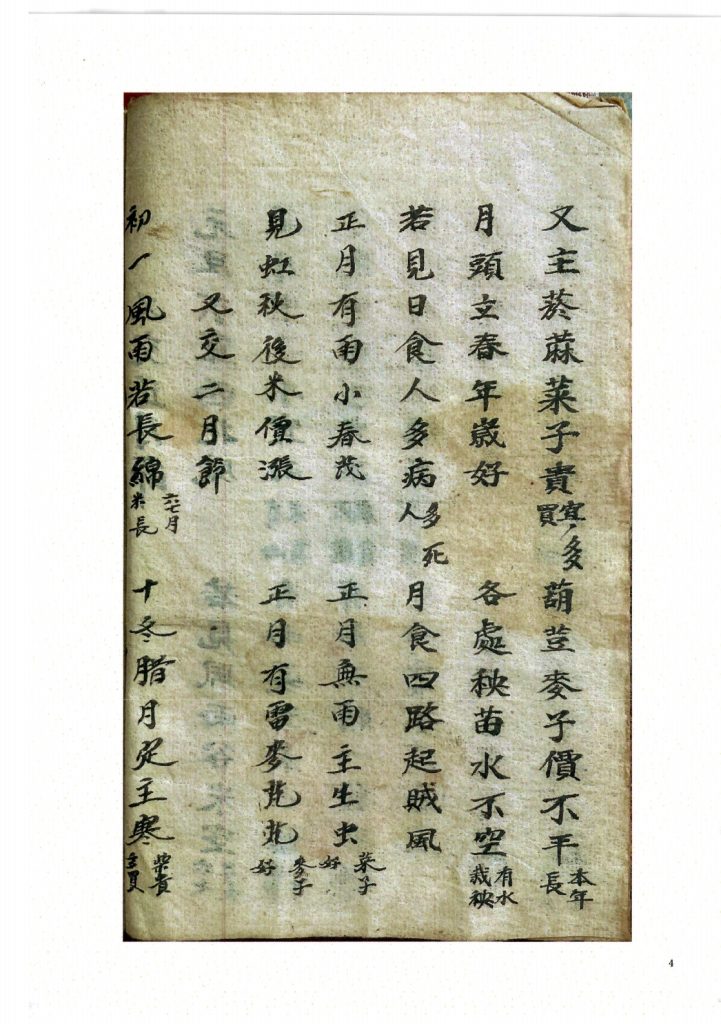 又主菸蔴菜子貴宜多買 葫荳麥子價不平本年長
月頭立春年嵗好 各處秧苗水不空有水栽秧
若見日食人多病人多死 月食四路起賊風
正月有雨小春茂 正月無雨主生虫菜子好
見虹秋後米價漲 正月有雷麥芃芃麥子好
又交二月節
初一風雨若長綿六七月米長 十冬腊月定主寒柴貴主買
4